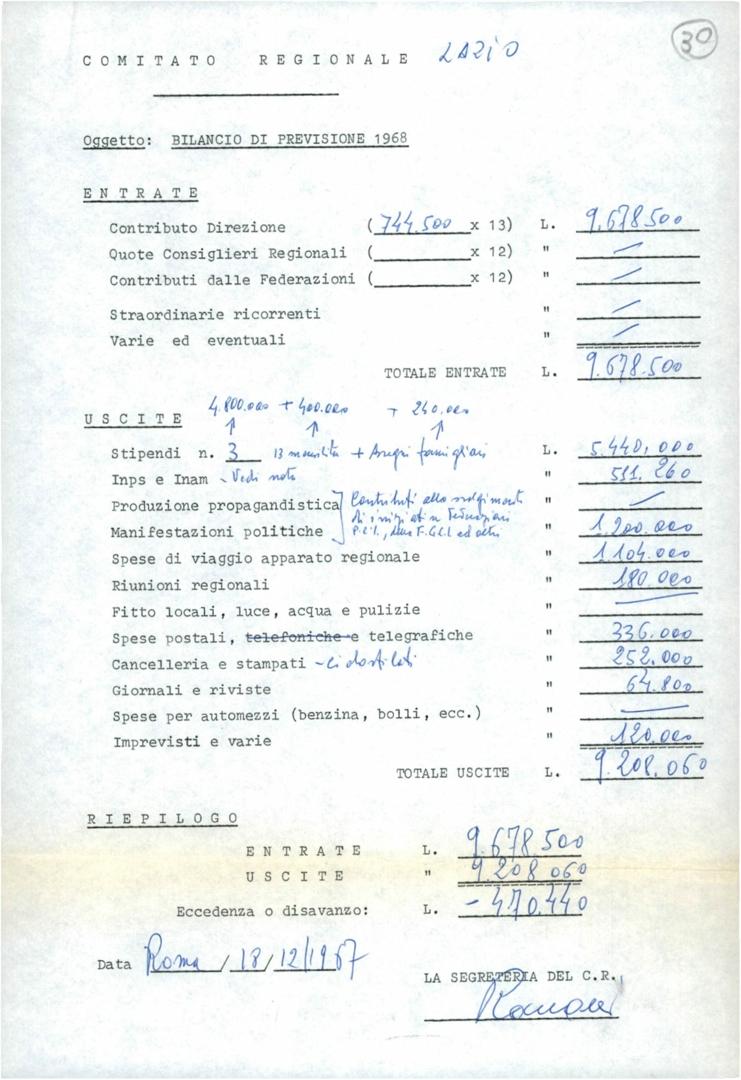 30
COMITATO REGIONALE LAZIO
Oggetto: BILANCIO DI PREVISIONE 1968
ENTRATE
Contributo Direzione (744.500 x 13) L. 9.678.500
Quote Consiglieri Regionali ( x 12) " /
Contributi dalle Federazioni ( x 12) " /
Straordinarie ricorrenti " /
Varie ed eventuali " /
TOTALE ENTRATE L. 9.678.500
4.800.000 + 400.000 + 240.000
USCITE
Stipendi n. 3 13 mensilità + Assegni famigliari L. 5.440.000
Inps e Inam - Vedi nota " 511.260
Produzione propagandistica Contributi allo svolgimento " /
Manifestazioni politiche P.C.I., F.G.C.I. ed altri " 1.200.000
Spese di viaggio apparato regionale " 1.104.000
Riunioni regionali " 180.000
Fitto locali, luce, acqua e pulizie " —
Spese postali, telefoniche e telegrafiche " 336.000
Cancelleria e stampati - " 252.000
Giornali e riviste " 64.800
Spese per automezzi (benzina, bolli, ecc.) " —
Imprevisti e varie " 120.000
TOTALE USCITE L. 9.208.060
RIEPILOGO
ENTRATE L. 9.678.500
USCITE " 9.208.060
Eccedenza o disavanzo: L. - 470.440
Data Roma / 18/12/1967
LA SEGRETERIA DEL C.R.